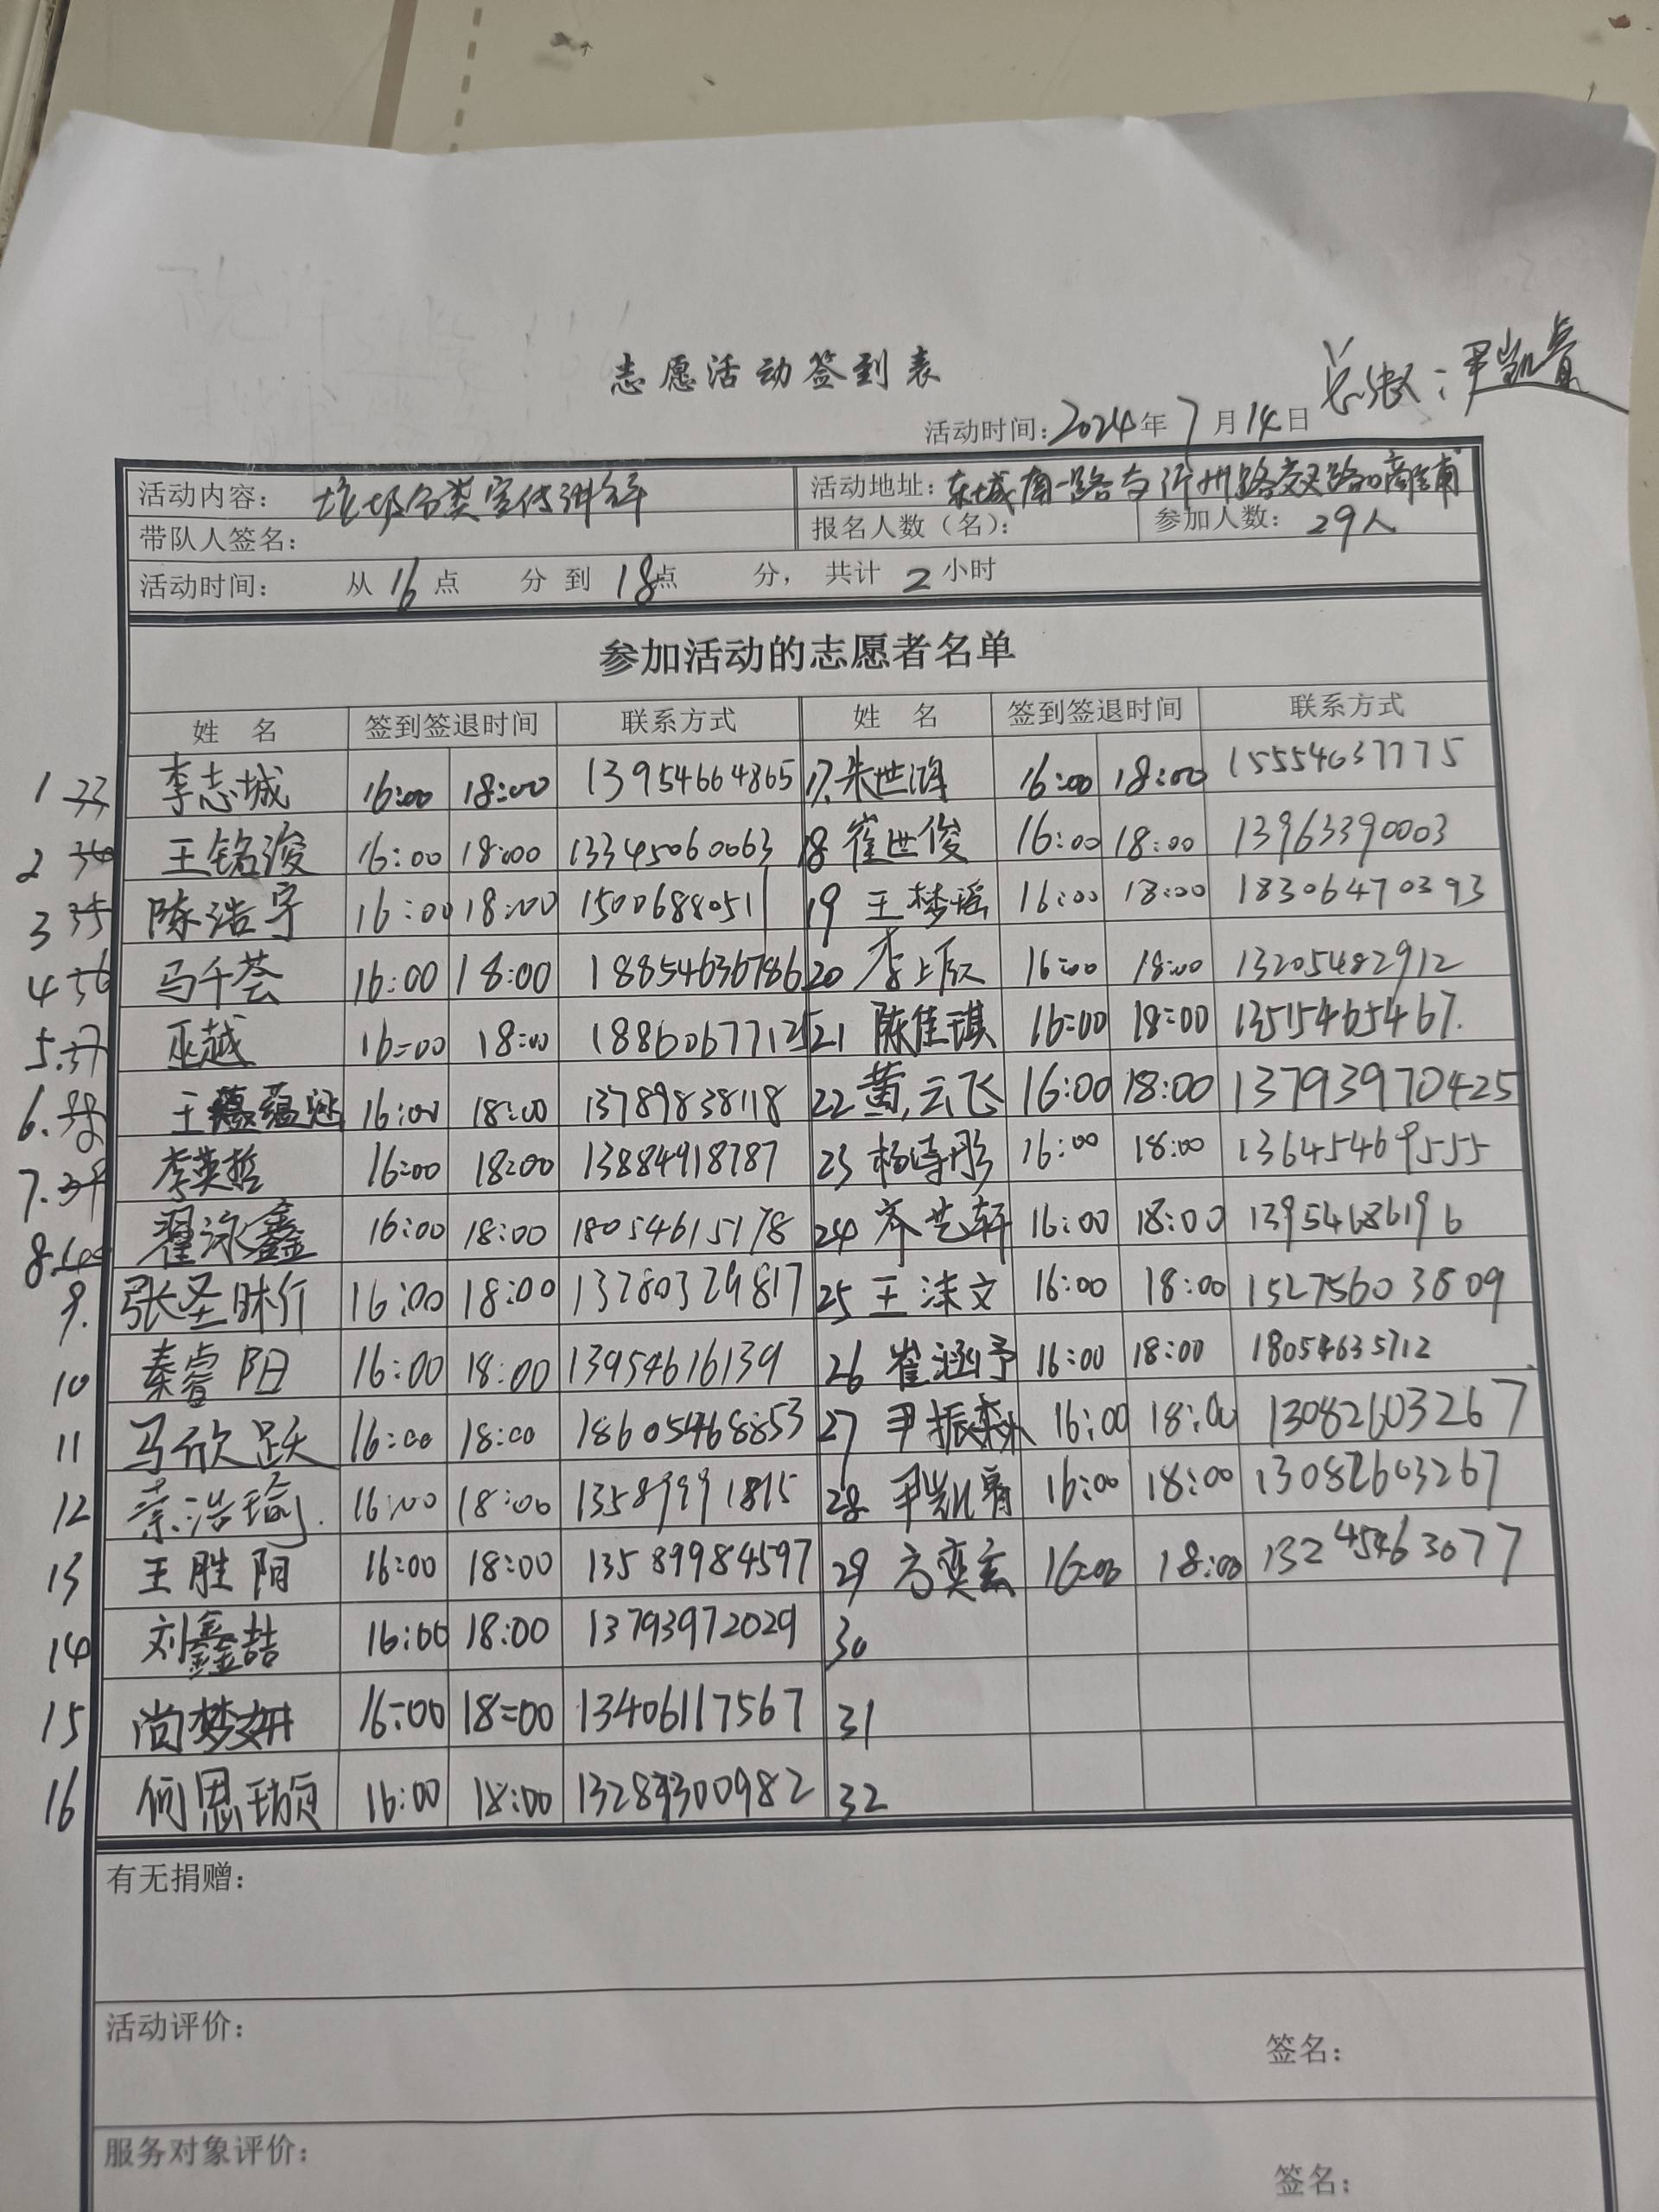 志愿活动签到表
总领:尹凯睿
活动时间:2024年7月14日
活动内容: 垃圾分类宣传讲解 活动地址:东城南一路与沂州路交叉路口商铺
带队人签名: 报名人数(名): 参加人数: 29人
活动时间: 从16点 分到18点 分, 共计2小时
参加活动的志愿者名单
姓 名 签到签退时间 联系方式 姓 名 签到签退时间 联系方式
1 33 李志城 16:00 18:00 13954664865 17.朱世鸿 16:00 18:00 15554637775
2 34 王铭浚 16:00 18:00 13345060063 18 崔世俊 16:00 18:00 13963390003
3 35 陈浩宇 16:00 18:00 15006880511 19 王梦瑶 16:00 18:00 18306470393
4 36 马千荟 16:00 18:00 18854636786 20 李上 16:00 18:00 13205482912
5.37 巫越 16=00 18:00 18860677125 21 陈佳琪 16:00 18:00 13515465467.
6.38 王蕴 16:00 18:00 13789838118 22 黄云飞 16:00 18:00 13793970425
7.39 李英哲 16:00 18:00 13884918787 23 杨诗彤 16:00 18:00 13645469555
8.40 翟泳鑫 16:00 18:00 18054615178 24 齐艺轩 16:00 18:00 13954686196
9. 张圣 16:00 18:00 13280329817 25 王沫文 16:00 18:00 15275603809
10 秦睿阳 16:00 18:00 13954616139 26 崔涵予 16:00 18:00 18054635712
11 马欣跃 16:00 18:00 18605468853 27 尹振 16:00 18:00 13082603267
12 浩瑜. 16:00 18:00 13589991815 28 尹凯睿 16:00 18:00 13082603267
13 王胜阳 16:00 18:00 13589984597 29 方奕 16:00 18:00 13245463077
14 刘鑫喆 16:00 18:00 13793972029 30
15 尚梦妍 16:00 18=00 13406117567 31
16 何恩 16:00 18:00 32
有无捐赠:
活动评价:
签名:
服务对象评价:
签名: